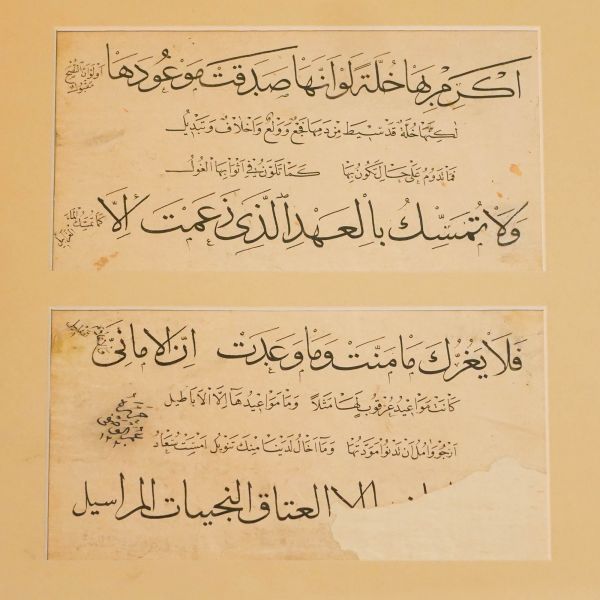 اَكْرِمْ بِهَا خُلَّةً لَوْ اَنَّهَا صَدَقَتْ مَوْعُودَهَا اَوْ لَوْ اَنَّ النُّصْحَ مَقْبُولُ
لٰكِنَّهَا خُلَّةٌ قَدْ سِيطَ مِنْ دَمِهَا فَجْعٌ وَوَلْعٌ وَاِخْلَافٌ وَتَبْدِيلُ
فَمَا تَدُومُ عَلٰى حَالٍ تَكُونُ بِهَا كَمَا تَلَوَّنُ فِي اَثْوَابِهَا الْغُولُ
وَلَا تُمَسِّكُ بِالْعَهْدِ الَّذِي زَعَمَتْ اِلَّا كَمَا تُمْسِكُ الْمَاءَ الْغَرَابِيلُ
فَلَا يَغُرَّكَ مَا مَنَّتْ وَمَا وَعَدَتْ اِنَّ الْاَمَانِيَّ
كَانَتْ مَوَاعِيدُ عُرْقُوبٍ لَهَا مَثَلًا وَمَا مَوَاعِيدُهَا اِلَّا الْاَبَاطِيلُ
اَرْجُو وَاٰمُلُ اَنْ تَدْنُوَا مَوَدَّتُهَا وَمَا اِخَالُ لَدَيْنَا مِنْكِ تَنْوِيلُ اَمْسَتْ سُعَادُ
الا العتاق النجيبات المراسيل